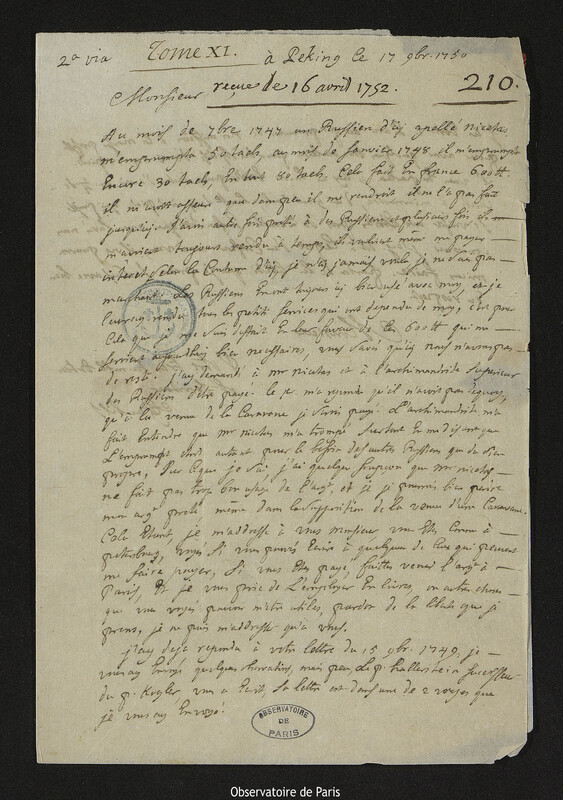 2a via Tome XI. à Peking le 17 9br. 1750
Monsieur reçue le 16 avril 1752. 210.
Au mois de 7bre 1747 un Russien d'icy apellé nicolas
m'emprumpta 50 taels, au mois de Janvier 1748 il m'emprumpta
Encore 30 taels, En tout 80 taels. Cela fait En france 600tt
il m'avoit asseuré que dans peu il me rendroit il ne l'a pas fait
jusqu'icy. J'avois autres fois preté à des Russiens et plusieurs fois ils
m'avoient toujours rendu à temps, ils vouloient meme me payer
interet selon la Coutume d'icy, je n'ay jamais voulu je ne suis pas
marchand. Les Russiens En ont toujours bien usé avec moy, et je
leur ay rendu tous les petits services qui ont dependu de moy, c'est pour
Cela que je me suis deffait En leur faveur de ces 600tt qui me
seroient aujourdhuy bien necessaires, vous savés qu'icy nous n'avons pas
de reste. j'ay demandé à mr nicolas et à l'archimandrite superieur
des Russiens d'être payé. le 1r m'a repondu qu'il n'avoit pas dequoy,
qu'à la venue de la Caravane je serois payé. L'archimandrite m'a
fait Entendre que mr nicolas m'a trompé surtout En me disant que
L'emprumpt etoit autant pour le besoin des autres Russiens que du sien
propre, sur ce que je sai j'ai quelque soupçon que mr nicolas
ne fait pas trop bon usage de l'argt, et je pourrois bien perdre
mon argt preté, même dans la supposition de la venue d'une Caravane.
Cela Etant, je m'addresse à vous monsieur vous Etes Connu à
petersbourg, voyés si vous pouvés Ecrire à quelqu'un de ceux qui peuvent
me faire payer, Si vous Etes payé, faittes venir l'argt à
Paris, Et je vous prie de L'employer En livres, ou autres choses
que vous voyés pouvoir m'être utiles, pardon de la liberté que je
prens, je ne puis m'addresser qu'à vous.
j'ay deja repondu à votre lettre du 15 9br. 1749, je
vous ay Envoyé quelques observations, mais peu. Le p. hallerstein successeur
du p. Kogler, vous a Ecrit, sa lettre est dans une de 2 voyes que
je vous ay Envoyé.
OBSERVATOIRE
DE
PARIS
Observatoire de Paris